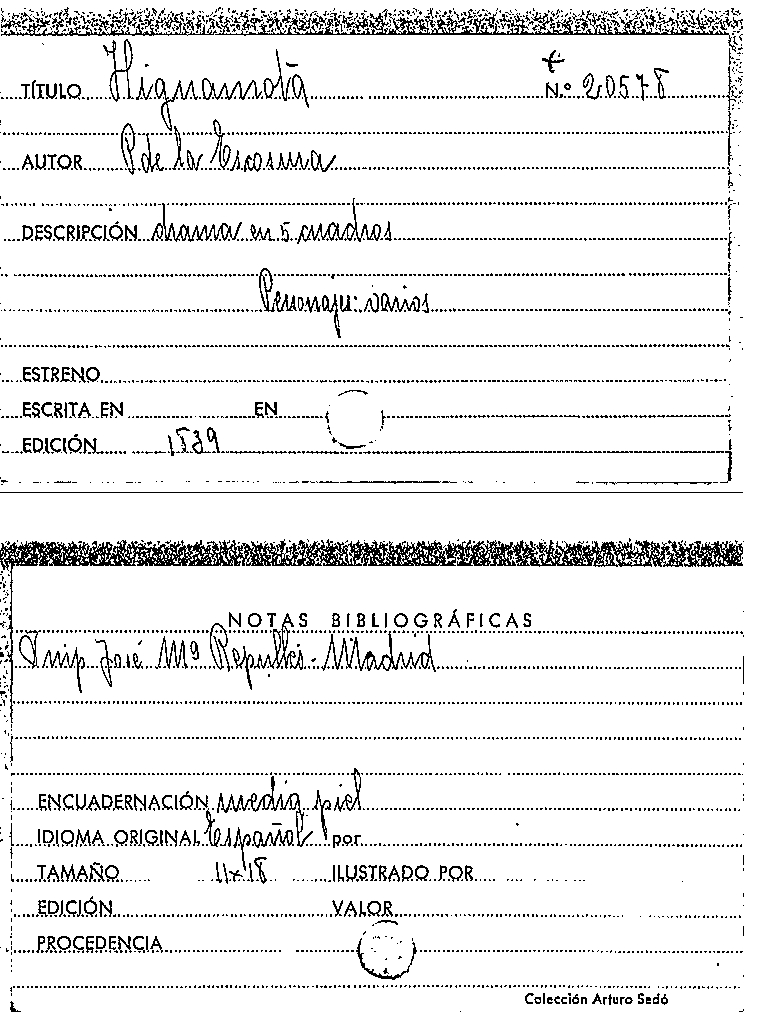 TÍTULO Higuamota
+
N.º 20578
AUTOR P. de la Escosura
DESCRIPCIÓN drama en 5 cuadros
Personajes: varios
ESTRENO
ESCRITA EN EN
EDICIÓN 1839
NOTAS BIBLIOGRÁFICAS
Imp José Mª Repullés - Madrid
ENCUADERNACIÓN media piel
IDIOMA ORIGINAL Español por
TAMAÑO 11x18 ILUSTRADO POR
EDICIÓN VALOR
PROCEDENCIA
Colección Arturo Sedó